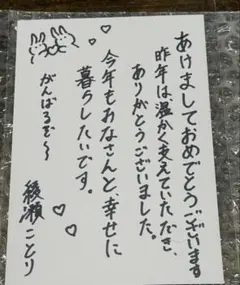 あけましておめでとうございます
昨年は、温かく支えていただき、
ありがとうございました。
今年もみなさんと、幸せに
暮らしたいです。
がんばるぞ〜
綾瀬ことり